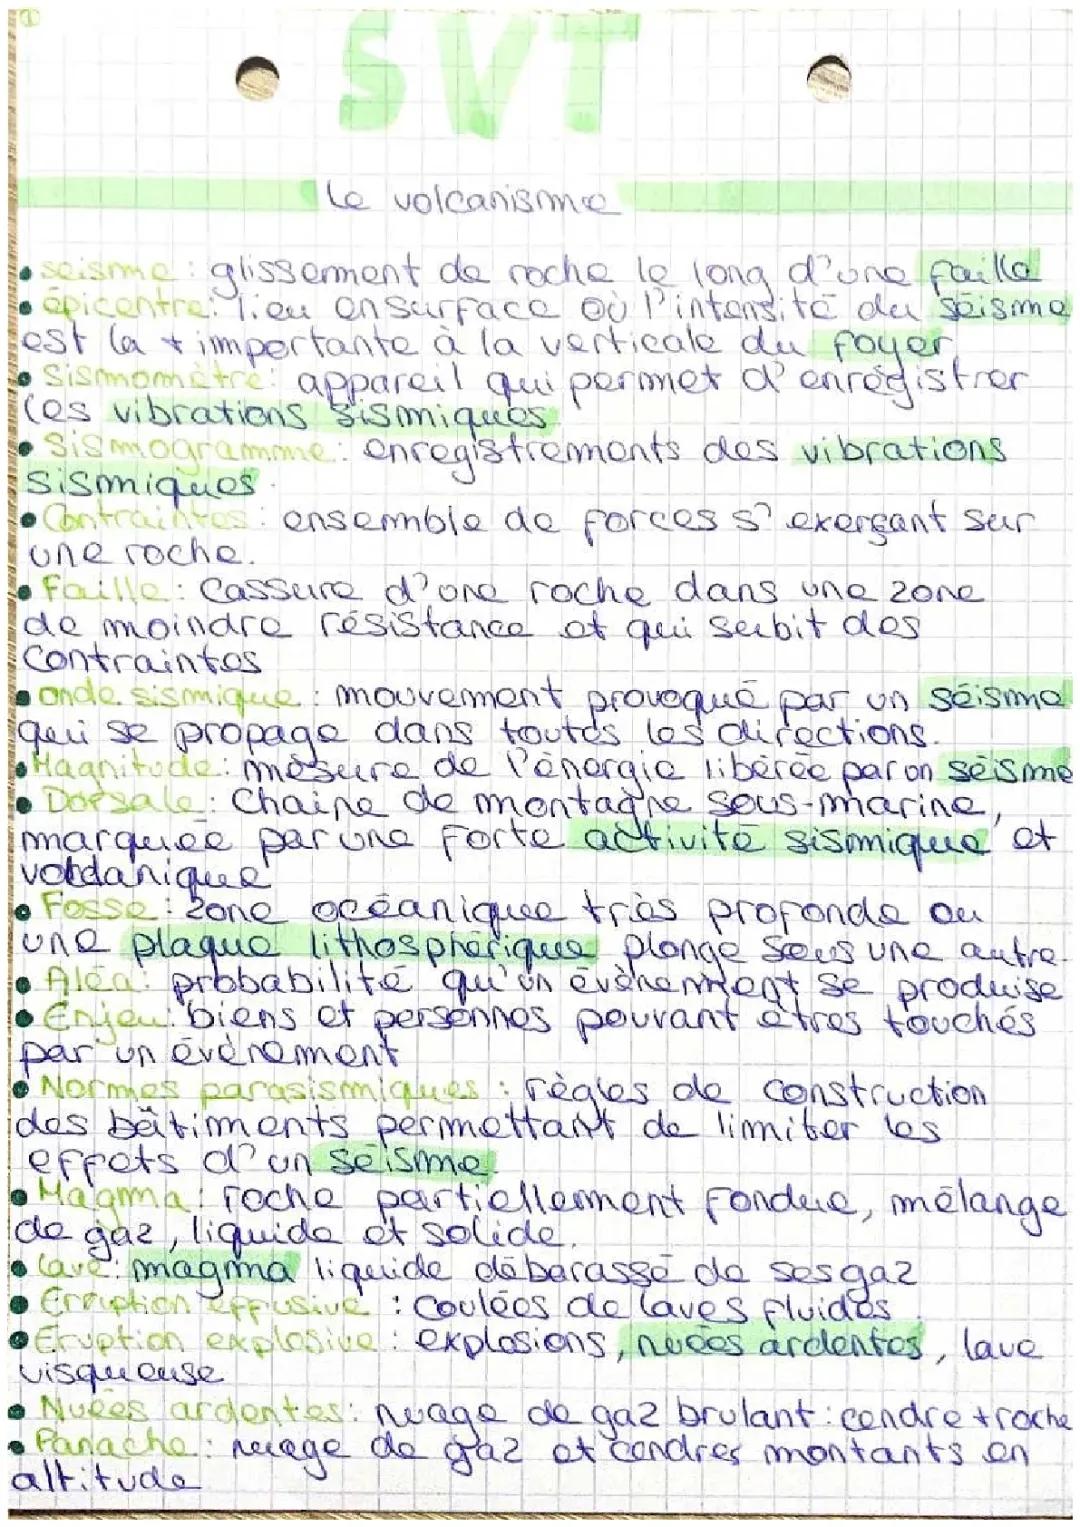 SVT
Le volcanisme
• seisme : glissement de roche le long d'une faille
• épicentre : lieu en surface où l'intensité du séisme
est la + importante à la verticale du foyer
• Sismomètre : appareil qui permet d'enrégistrer
les vibrations sismiques
• Sismogramme : enregistrements des vibrations
sismiques
• Contraintes : ensemble de forces s'exerçant sur
une roche.
• Faille : Cassure d'une roche dans une zone
de moindre résistance et qui subit des
contraintes
• onde sismique : mouvement provoqué par un séisme
qui se propage dans toutes les directions.
• Magnitude : mesure de l'énergie libérée par un séisme
• Dorsale : Chaine de montagne sous-marine,
marquée par une forte activité sismique et
volcanique
• Fosse : zone océanique très profonde ou
une plaque lithosphérique plonge sous une autre.
• Aléa : probabilité qu'un évènement se produise
• Enjeu : biens et personnes pouvant êtres touchés
par un évènement
• Normes parasismiques : règles de construction
des bâtiments permettant de limiter les
effets d'un séisme
• Magma : roche partiellement fondue, mélange
de gaz, liquide et solide.
• Lave : magma liquide débarassé de ses gaz
• Erruption effusive : Coulées de laves fluides
• Eruption explosive : explosions, nuées ardentes, lave
visqueuse
• Nuées ardentes : nuage de gaz brulant : cendre + roche
• Panache : nuage de gaz et cendres montants en
altitude